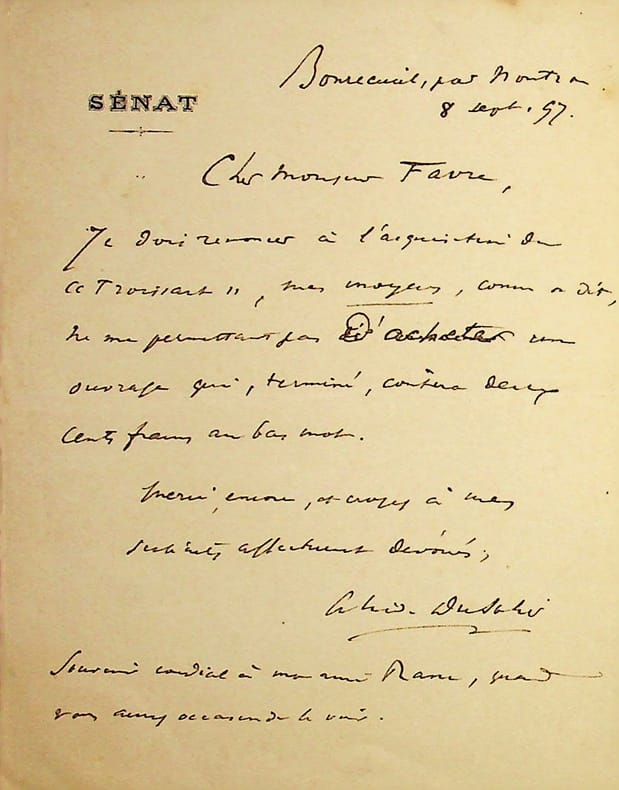 SÉNAT
Bonrecueil, par Nontron
8 sept. 97.
Cher Monsieur Favre,
Je dois renoncer à l'acquisition du
"Froissart", mes moyens, comme on dit,
ne me permettant pas d'acheter un
ouvrage qui, terminé, coûtera deux
cents francs au bas mot.
Merci encore, et croyez à mes
sentiments affectueusement dévoués,
Alcide Dusolier
Souvenir cordial à mon ami Ranc, quand
vous aurez occasion de le voir.